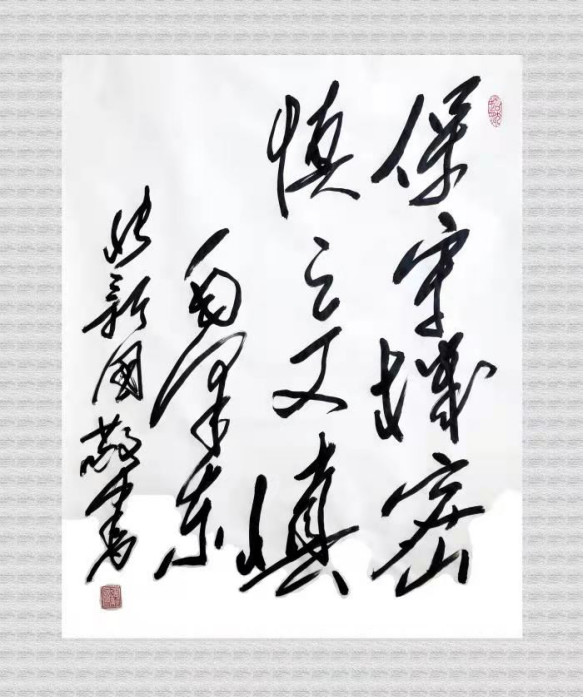 保守机密
慎之又慎
毛泽东
新国敬书